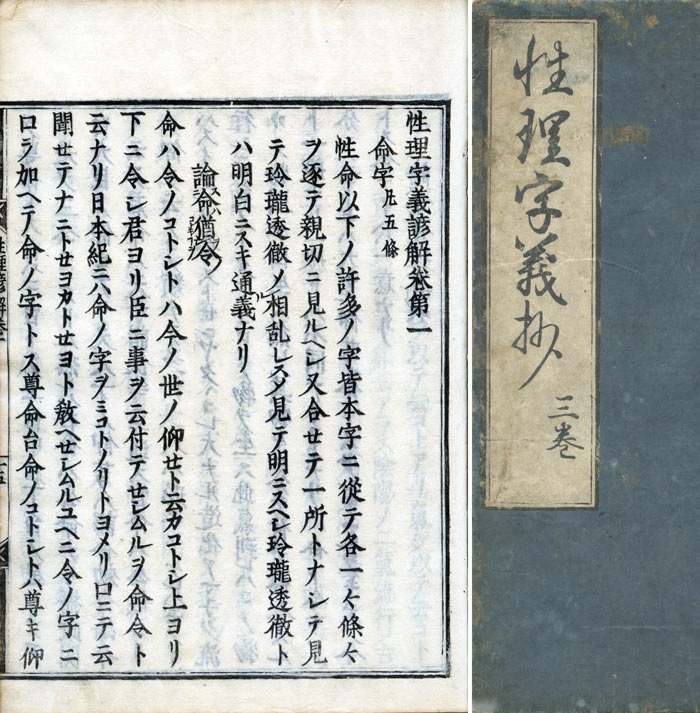 性理字義抄
三巻
性理字義諺解卷第一
命字 凡五條
性命以下ノ許多ノ字皆本字ニ從テ各一々條々
ヲ逐テ親切ニ見ルヘシ又合セテ一所トナシテ見
テ玲瓏透徹ノ相乱レスメ見テ明ニスヘシ玲瓏透徹ト
ハ明白ニスキ通義ナリ
論命猶令
命ハ令ノコトシトハ今ノ世ノ仰セト云カコトシ上ヨリ
下ニ令シ君ヨリ臣ニ事ヲ云付テセシムルヲ命令ト
云ナリ日本紀ニハ命ノ字ヲミコトノリトヨメリ口ニテ云
聞セテナニトセヨカトセヨト教ヘセシムルユヘニ令ノ字ニ
口ヲ加ヘテ命ノ字トス尊命台命ノコトシトハ尊キ仰
性理諺解卷